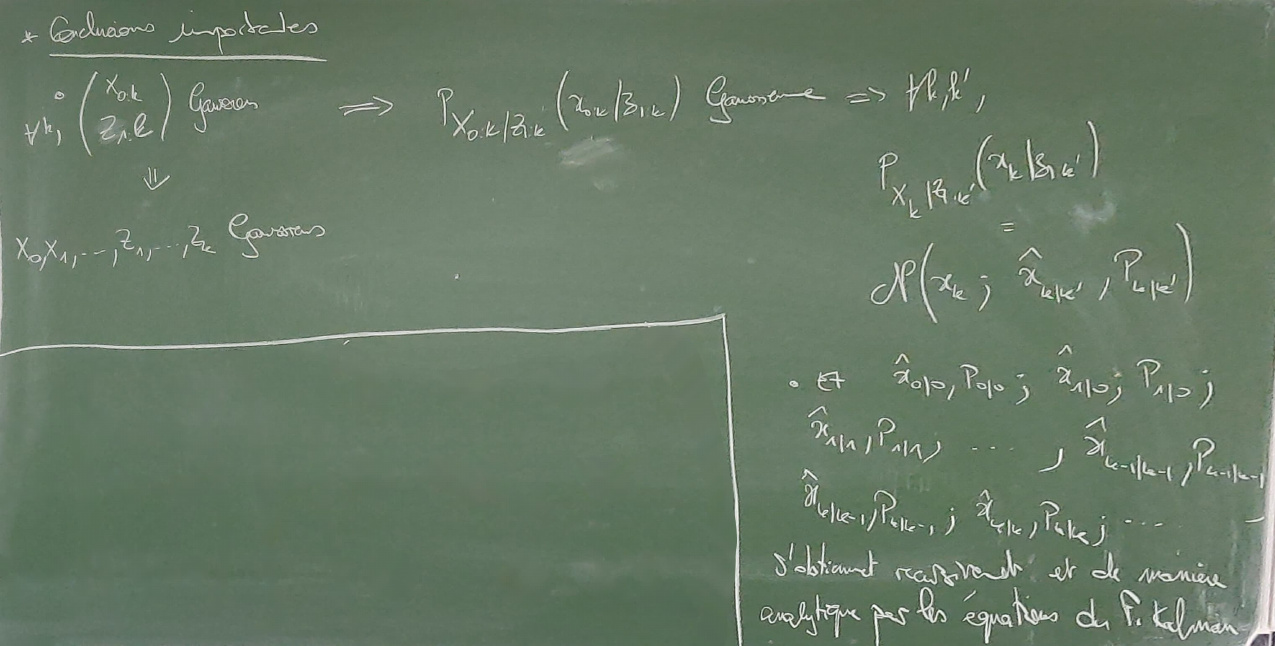 * Conclusions importantes
• ∀k, (X₀:k Z₁:k) Gaussien ⟹ P_{X₀:k|Z₁:k}(x₀:k|z₁:k) Gaussienne ⟹ ∀k,k',
P_{X_k|Z₁:k'}(x_k|z₁:k')
=
𝒩(x_k ; x̂_{k|k'}, P_{k|k'})
⇓
X₀,X₁,...,Z₁,...,Z_k Gaussiens
• Et x̂_{0|0}, P_{0|0} ; x̂_{1|0} ; P_{1|0} ;
x̂_{1|1}, P_{1|1}, ... , x̂_{k-1|k-1}, P_{k-1|k-1}
x̂_{k|k-1}, P_{k|k-1} ; x̂_{k|k}, P_{k|k} ; ...
s'obtiennent récursivement et de manière
analytique par les équations du F. Kalman